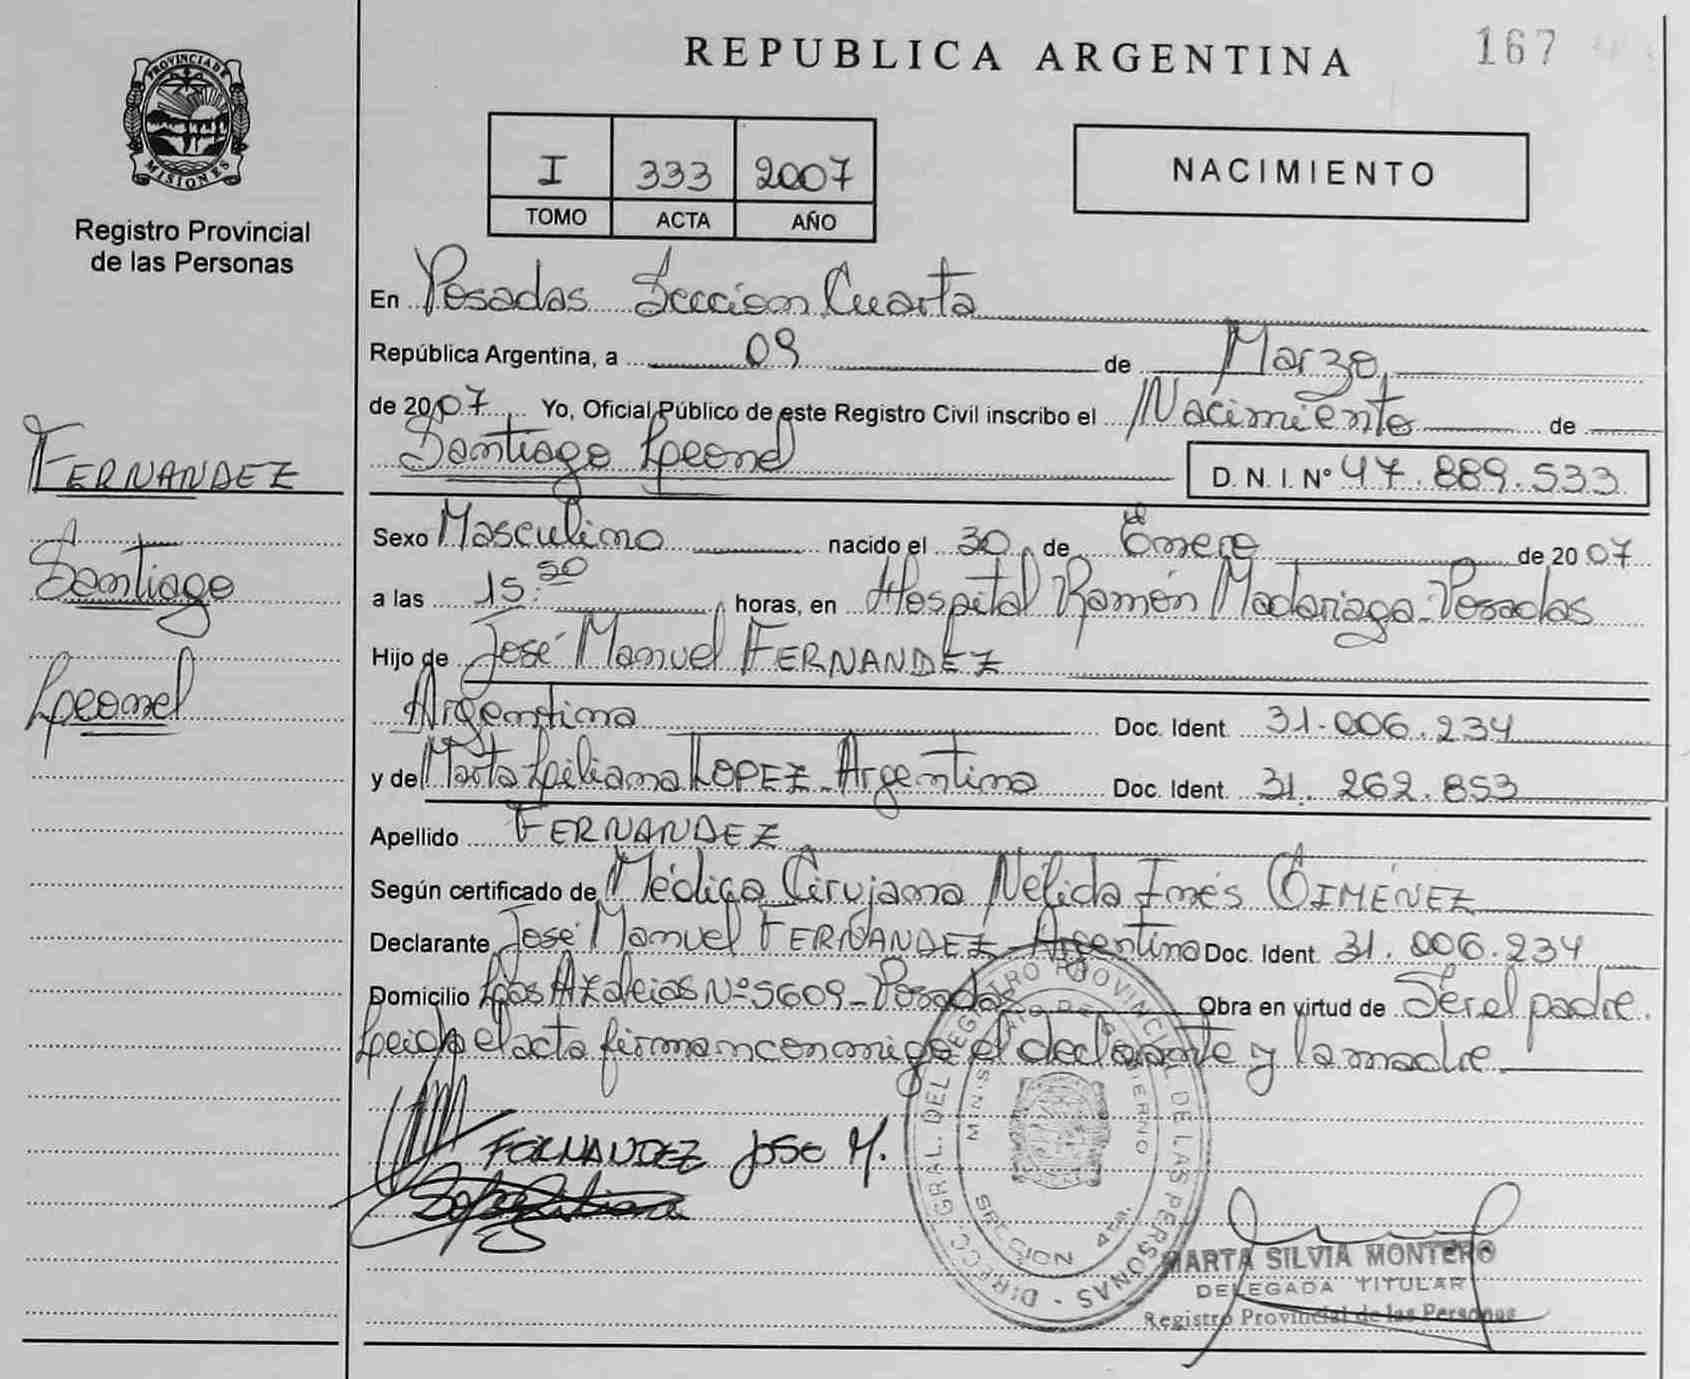 REPUBLICA ARGENTINA
167
PROVINCIA DE
MISIONES
Registro Provincial
de las Personas
I 333 2007
TOMO ACTA AÑO
NACIMIENTO
En Posadas Seccion Cuarta
República Argentina, a 09 de Marzo
de 2007 Yo, Oficial Público de este Registro Civil inscribo el Nacimiento de
Santiago Leonel
D. N. I. Nº 47.889.533
FERNANDEZ
Santiago
Leonel
Sexo Masculino nacido el 30 de Enero de 2007
a las 15:50 horas, en Hospital Ramón Madariaga - Posadas
Hijo de José Manuel FERNANDEZ
Argentina Doc. Ident. 31.006.234
y de Marta Liliana LOPEZ - Argentina Doc. Ident. 31.262.853
Apellido FERNANDEZ
Según certificado de Médica Cirujana Nélida Inés GIMENEZ
Declarante José Manuel FERNANDEZ - Argentina Doc. Ident. 31.006.234
Domicilio Las Azaleias Nº 5609 - Posadas Obra en virtud de Ser el padre.
Leida el acta firman conmigo el declarante y la madre
FERNANDEZ JOSE M.
DIRECC. GRAL. DEL REGISTRO PROVINCIAL DE LAS PERSONAS
SECCION 4ta.
MARTA SILVIA MONTERO
DELEGADA TITULAR
Registro Provincial de las Personas